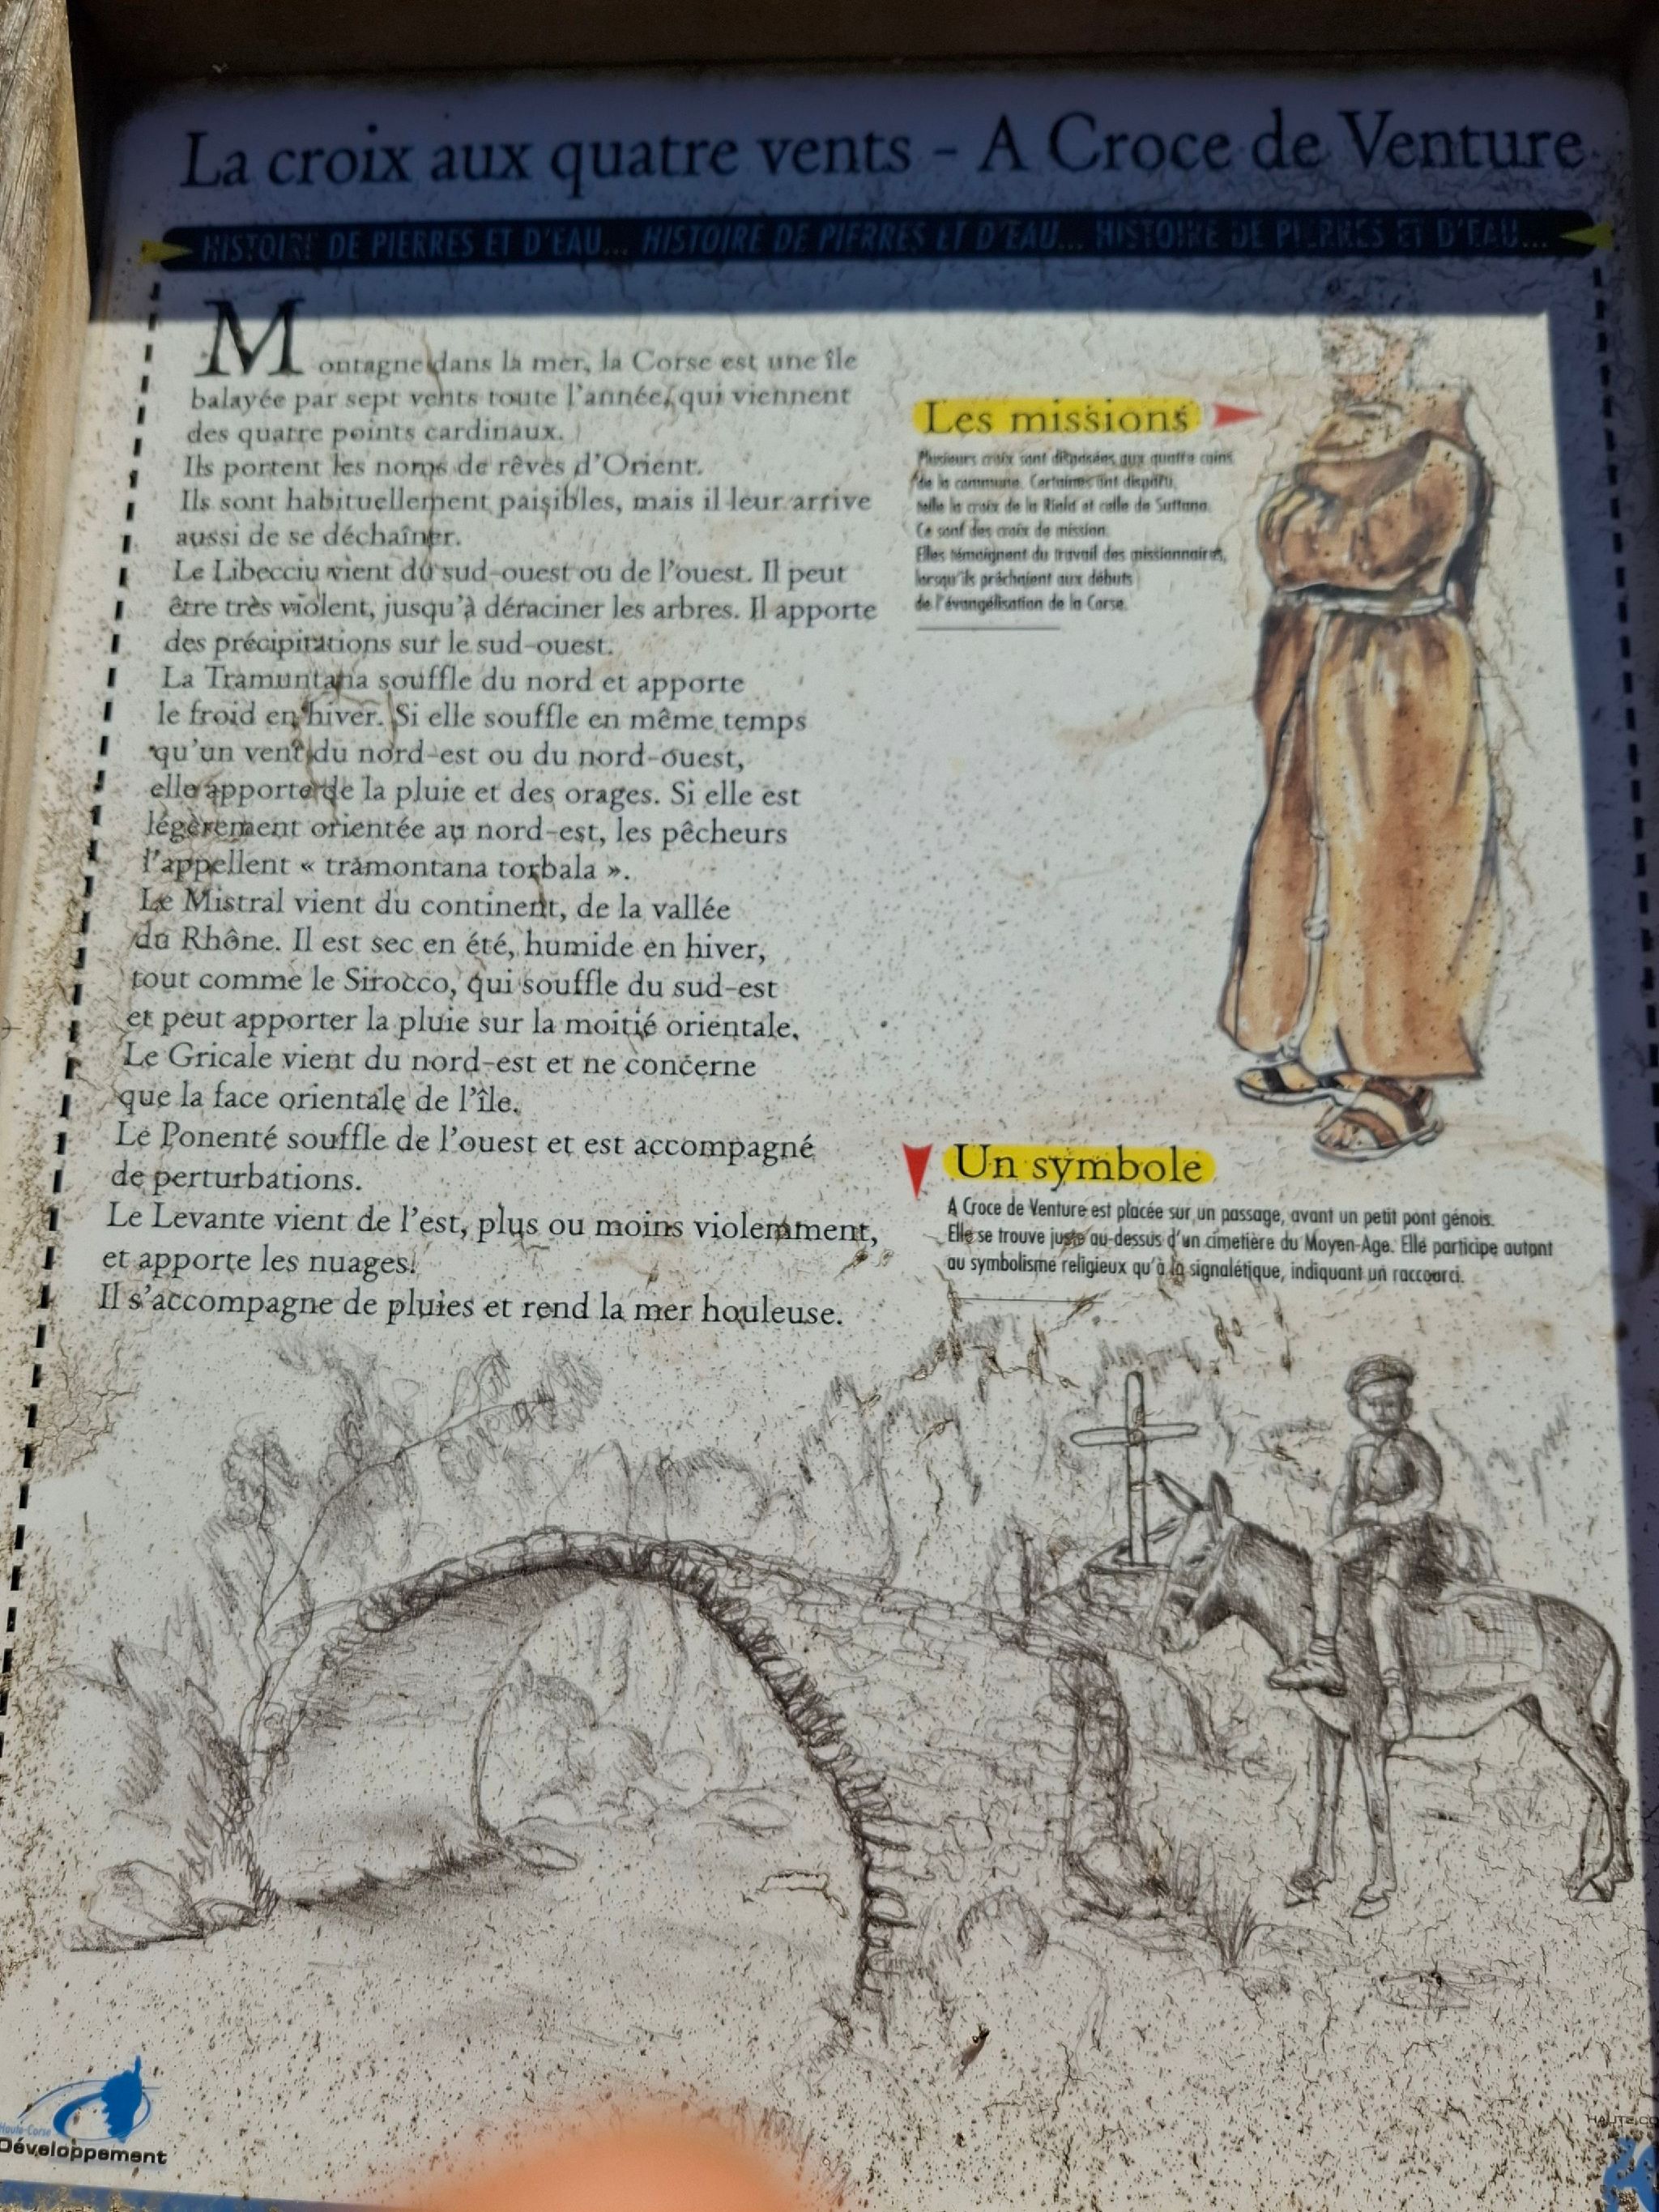 La croix aux quatre vents - A Croce de Venture
HISTOIRE DE PIERRES ET D'EAU... HISTOIRE DE PIERRES ET D'EAU... HISTOIRE DE PIERRES ET D'EAU...
Montagne dans la mer, la Corse est une île
balayée par sept vents toute l'année, qui viennent
des quatre points cardinaux.
Ils portent les noms de rêves d'Orient.
Ils sont habituellement paisibles, mais il leur arrive
aussi de se déchaîner.
Le Libecciu vient du sud-ouest ou de l'ouest. Il peut
être très violent, jusqu'à déraciner les arbres. Il apporte
des précipitations sur le sud-ouest.
La Tramuntana souffle du nord et apporte
le froid en hiver. Si elle souffle en même temps
qu'un vent du nord-est ou du nord-ouest,
elle apporte de la pluie et des orages. Si elle est
légèrement orientée au nord-est, les pêcheurs
l'appellent « tramontana torbala ».
Le Mistral vient du continent, de la vallée
du Rhône. Il est sec en été, humide en hiver,
tout comme le Sirocco, qui souffle du sud-est
et peut apporter la pluie sur la moitié orientale.
Le Gricale vient du nord-est et ne concerne
que la face orientale de l'île.
Le Ponenté souffle de l'ouest et est accompagné
de perturbations.
Le Levante vient de l'est, plus ou moins violemment,
et apporte les nuages.
Il s'accompagne de pluies et rend la mer houleuse.
Les missions
Plusieurs croix sont disposées aux quatre coins
de la commune. Certaines ont disparu,
telle la croix de la et celle de Suttana.
Ce sont des croix de mission.
Elles témoignent du travail des missionnaires,
lorsqu'ils prêchaient aux débuts
de l'évangélisation de la Corse.
Un symbole
A Croce de Venture est placée sur un passage, avant un petit pont génois.
Elle se trouve juste au-dessus d'un cimetière du Moyen-Age. Elle participe autant
au symbolisme religieux qu'à la signalétique, indiquant un raccourci.
Haute-Corse
Développement